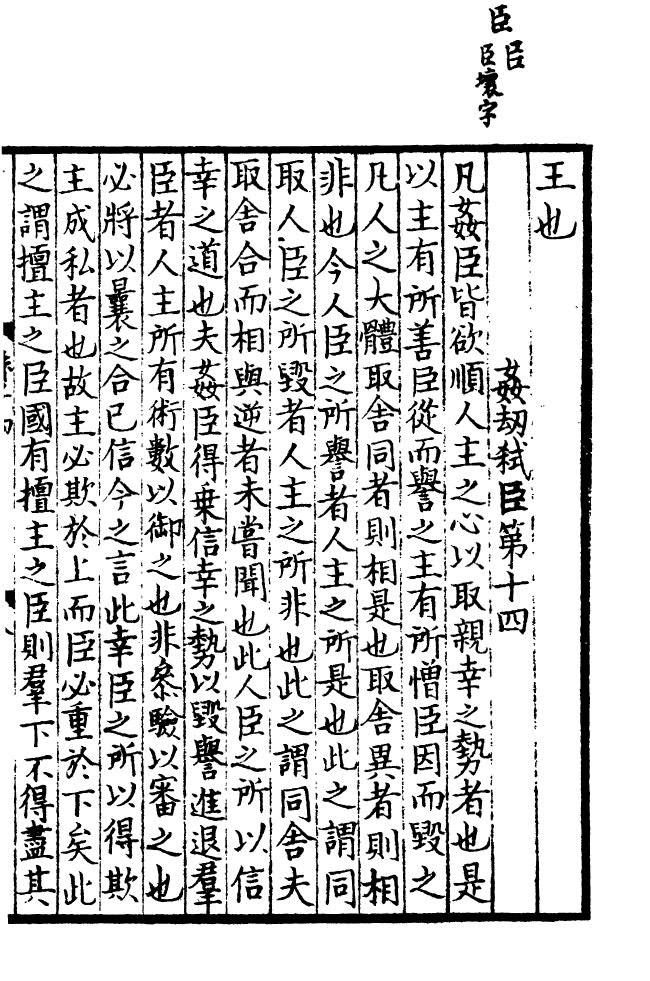 臣臣
臣壞字
王也
姦劫弑臣第十四
凡姦臣皆欲順人主之心以取親幸之勢者也是
以主有所善臣從而譽之主有所憎臣因而毀之
凡人之大體取舍同者則相是也取舍異者則相
非也今人臣之所譽者人主之所是也此之謂同
取人臣之所毀者人主之所非也此之謂同舍夫
取舍合而相與逆者未嘗聞也此人臣之所以信
幸之道也夫姦臣得乗信幸之勢以毀譽進退羣
臣者人主所有術數以御之也非參驗以審之也
必將以曩之合已信今之言此幸臣之所以得欺
主成私者也故主必欺於上而臣必重於下矣此
之謂擅主之臣國有擅主之臣則羣下不得盡其